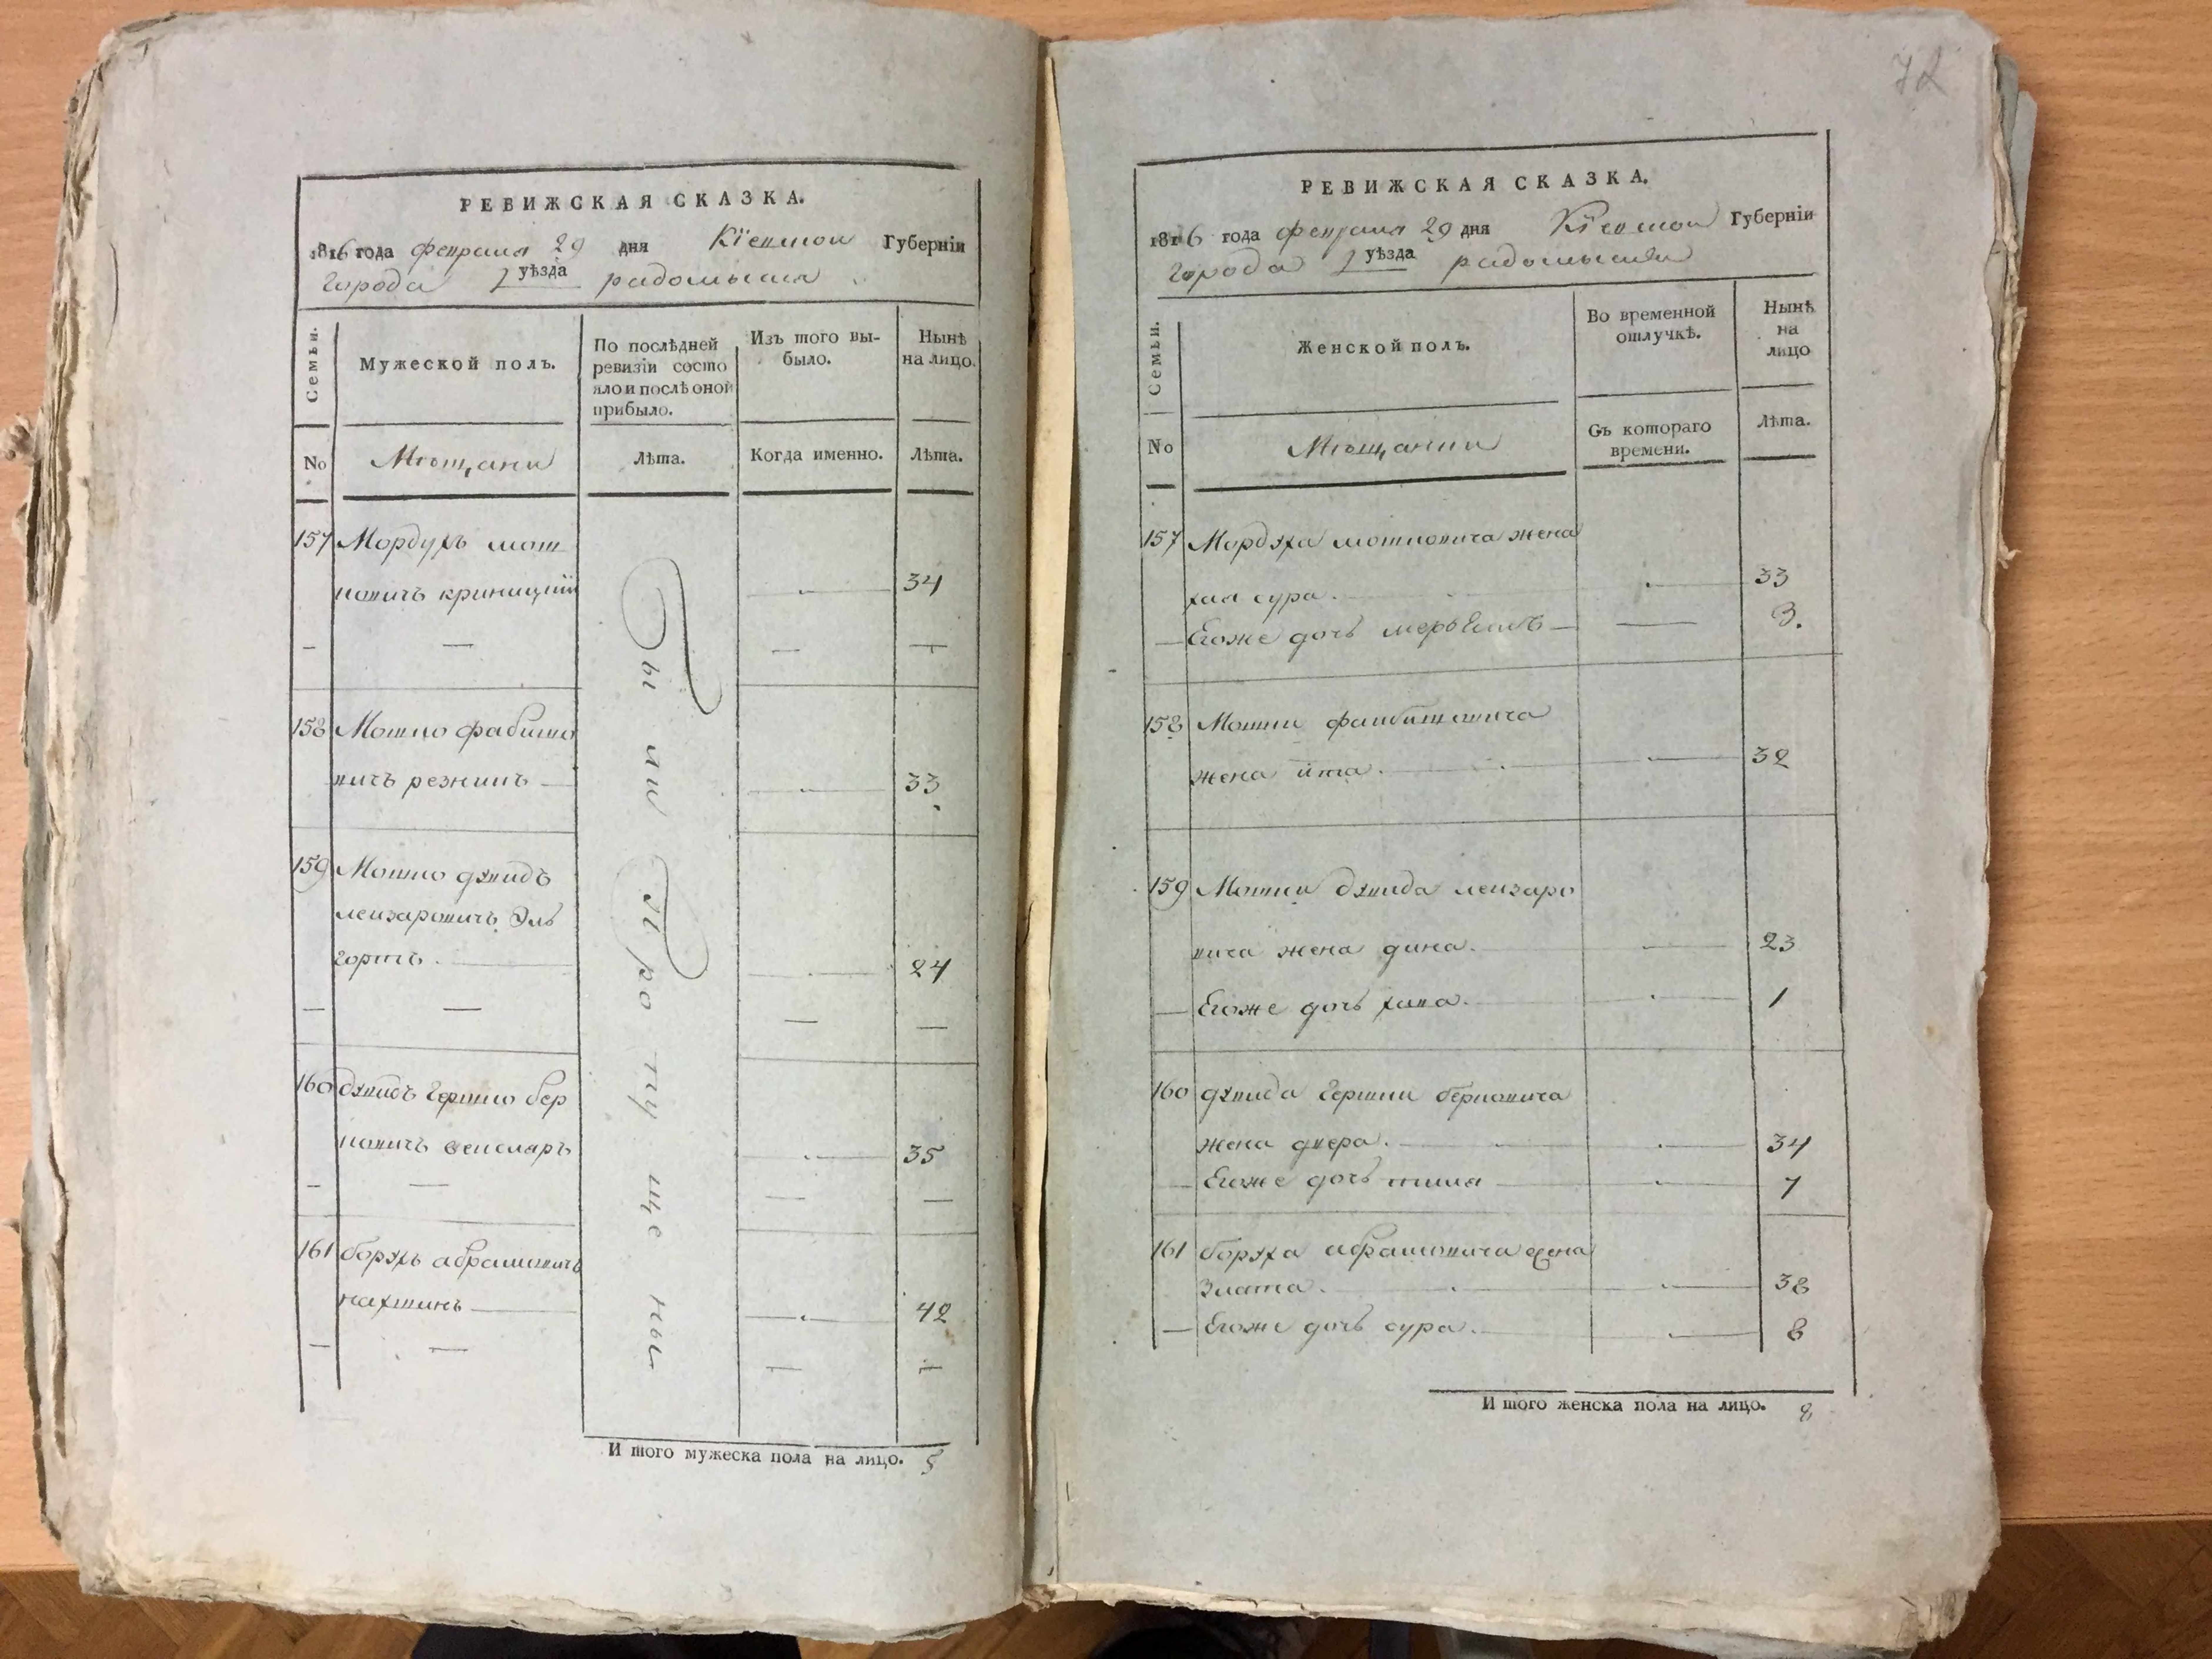 РЕВИЖСКАЯ СКАЗКА.
1816 года февраля 29 дня Кіевской Губерніи
города уѣзда радомысля
Семьи.
Мужеской полъ.
По послѣдней
ревизіи состо
яло и послѣ оной
прибыло.
Изъ того вы-
было.
Нынѣ
на лицо.
No
Мѣщани
Лѣта.
Когда именно.
Лѣта.
Были Пропущены
157 Мордухъ мош
ковичъ криницкій 34
158 Мошко фабишо
вичъ резникъ 33
159 Мошко дувидъ
леизаровичъ Эль
гортъ. 24
160 дувидъ Гершко бер
ковичъ 35
161 борухъ абрамовичъ
42
И того мужеска пола на лицо. 5
72
РЕВИЖСКАЯ СКАЗКА.
1816 года февраля 29 дня Кіевской Губерніи
города уѣзда радомысля
Семьи.
Женской полъ.
Во временной
отлучкѣ.
Нынѣ
на
лицо
No
Мѣщанки
Съ котораго
времени.
Лѣта.
157 Мордуха мошковича жена
хая сура. 33
Егоже дочь 3.
158 Мошки фаибишовича
жена ита. 32
159 Мошки дувида леизаро
вича жена дина. 23
Егоже дочь хава. 1
160 дувида Гершки берковича
жена двера. 34
Егоже дочь 7
161 боруха абрамовича жена
Злата. 38
Егоже дочь сура. 8
И того женска пола на лицо. 9